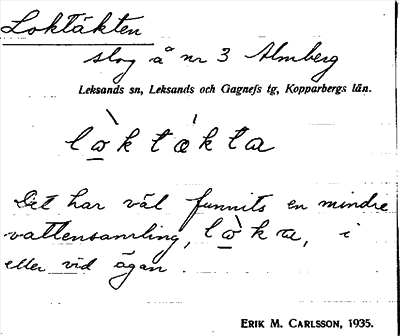 Loktäkten
slog å nr 3 Almberg
Leksands sn, Leksands och Gagnefs tg, Kopparbergs län.
lò̠ktǽkta
Det har väl funnits en mindre
vattensamling, lò̠ka, i
eller vid ägan.
ERIK M. CARLSSON, 1935.